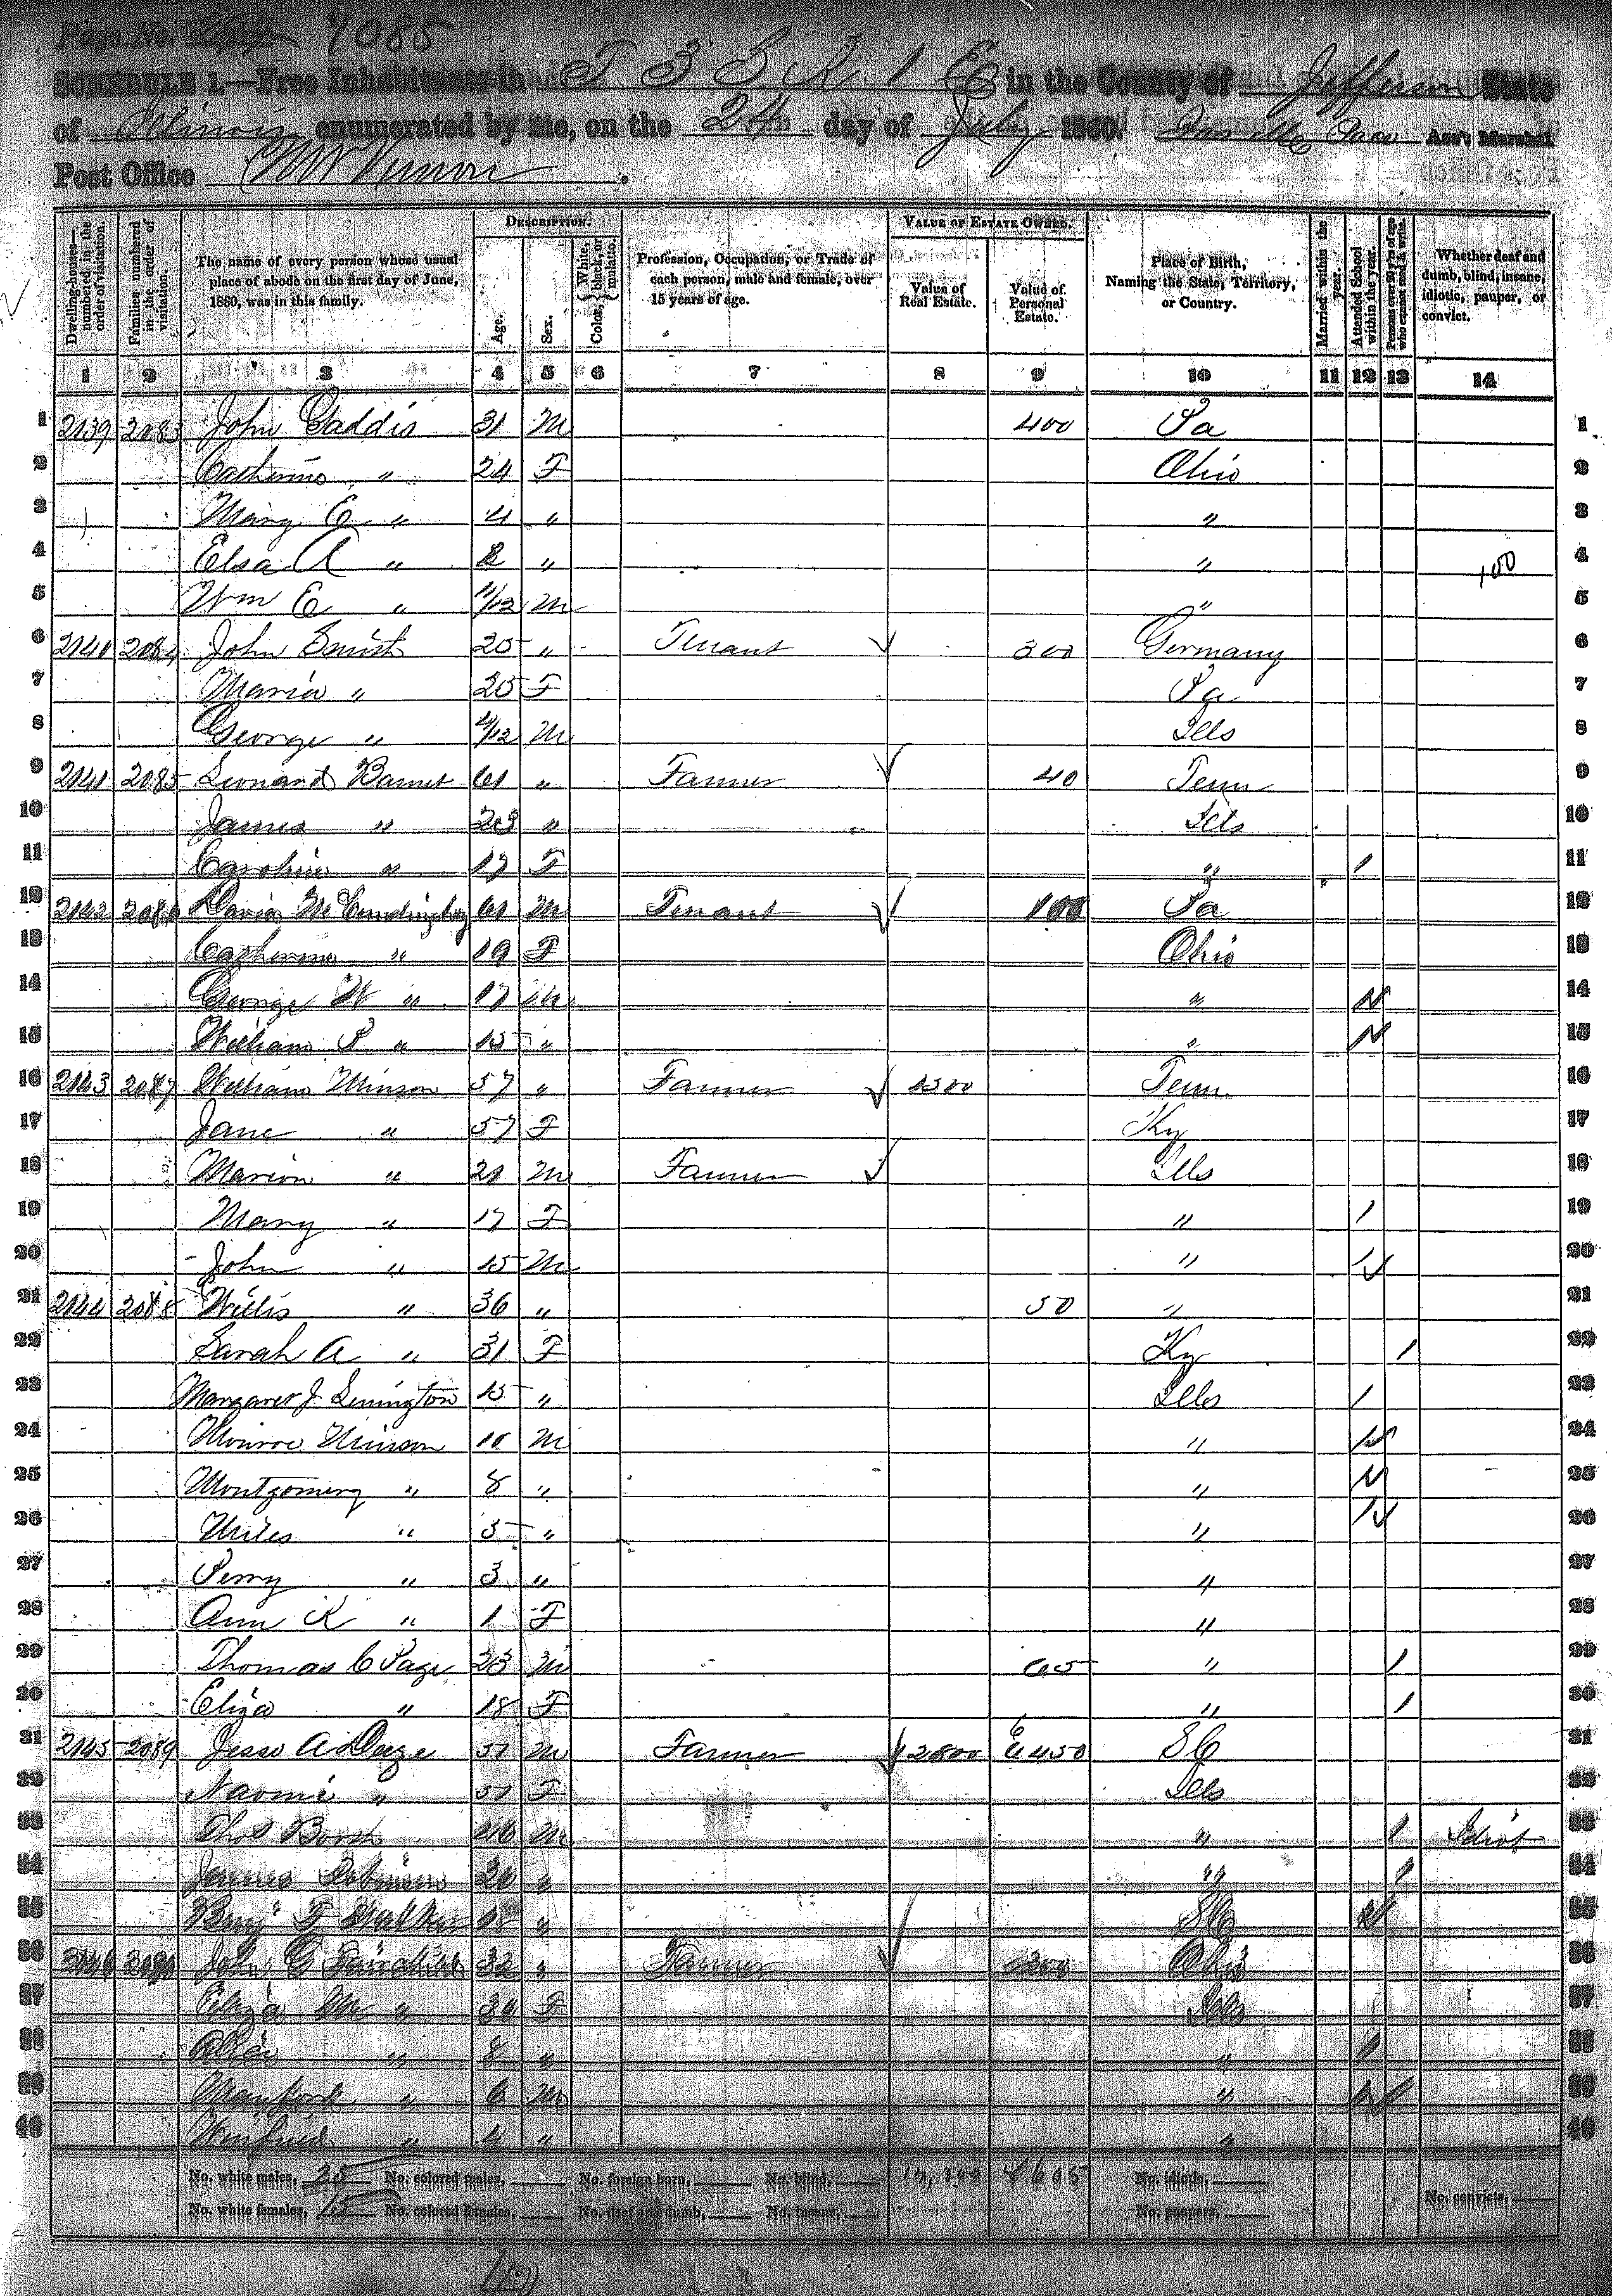 Page No. 4085
SCHEDULE 1.—Free Inhabitants in T 3 S R 1 E in the County of Jefferson State
of Illinois enumerated by me, on the 24 day of July 1860. Ass't Marshal.
Post Office Mt Vernon.
Dwelling-houses—numbered in the order of visitation.
Families numbered in the order of visitation.
The name of every person whose usual place of abode on the first day of June, 1860, was in this family.
DESCRIPTION.
Age.
Sex.
Color, { White, black, or mulatto.
Profession, Occupation, or Trade of each person, male and female, over 15 years of age.
VALUE OF ESTATE OWNED.
Value of Real Estate.
Value of Personal Estate.
Place of Birth, Naming the State, Territory, or Country.
Married within the year.
Attended School within the year.
Persons over 20 y'rs of age who cannot read & write.
Whether deaf and dumb, blind, insane, idiotic, pauper, or convict.
1 2 3 4 5 6 7 8 9 10 11 12 13 14
1 2139 2083 John Gaddis 31 M 400 Pa 1
2 Catherine " 24 F Ohio 2
3 Mary E " 4 " " 3
4 Elsa A " 2 " " 100 4
5 Wm E " 11/12 M " 5
6 2140 2084 John Smith 25 " Tenant 300 Germany 6
7 Maria " 25 F Pa 7
8 George " 4/12 M Ills 8
9 2141 2085 Leonard Barnet 61 " Farmer 40 Tenn 9
10 James " 23 " Ills 10
11 Caroline " 17 F " 1 11
12 2142 2086 David 61 M Tenant 100 Pa 12
13 Catherine " 19 F Ohio 13
14 George W " 17 M " 14
15 William P " 15 " " 15
16 2143 2087 William Minson 57 " Farmer 1300 Tenn 16
17 Jane " 57 F Ky 17
18 Marion " 21 M Farmer Ills 18
19 Mary " 17 F " 1 19
20 John " 15 M " 20
21 2144 2088 Willis " 36 " 50 " 21
22 Sarah A " 31 F Ky 1 22
23 Margaret J Linington 15 " Ills 1 23
24 Monroe Minson 10 M " 24
25 Montgomery " 8 " " 25
26 Miles " 5 " " 26
27 Perry " 3 " " 27
28 Ann K " 1 F " 28
29 Thomas C Page 23 M 65 " 1 29
30 Eliza " 18 F " 1 30
31 2145 2089 Jesse A 51 M Farmer 12800 6450 SC 31
32 Naomi " 51 F Ills 32
33 Thos M " 1 Idiot 33
34 James " " 1 34
35 Benj F Walker 18 " SC 35
36 2146 2090 John C Fairchild 32 " Farmer 300 Ohio 36
37 Eliza M " 30 F Ills 37
38 Alice " 8 " " 1 38
39 " 6 M " 39
40 Winfield " 4 " " 40
No. white males, 25 No. colored males, No. foreign born, No. blind, No. idiotic,
No. white females, 15 No. colored females, No. deaf and dumb, No. insane, No. paupers, No. convicts,